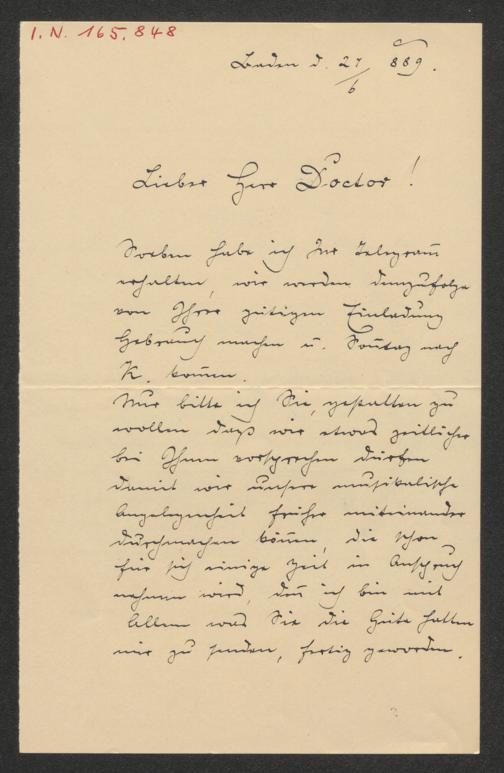 I. N. 165.848
Baden d. 27/6 889.
Lieber Herr Doctor!
Soeben habe ich Ihr Telegram̄
erhalten, wir werden demzufolge
von Ihrer gütigen Einladung
Gebrauch machen u. Son̄tag nach
K. kom̄en.
Nur bitte ich Sie, gestatten zu
wollen daß wir etwas zeitlicher
bei Ihnen vorsprechen dürfen
damit wir unsere musikalische
Angelegenheit früher miteinander
durchmachen kön̄en, die schon
für sich einige Zeit in Anspruch
nehmen wird, den̄ ich bin mit
Allem was Sie die Güte hatten
mir zu senden, fertig geworden.